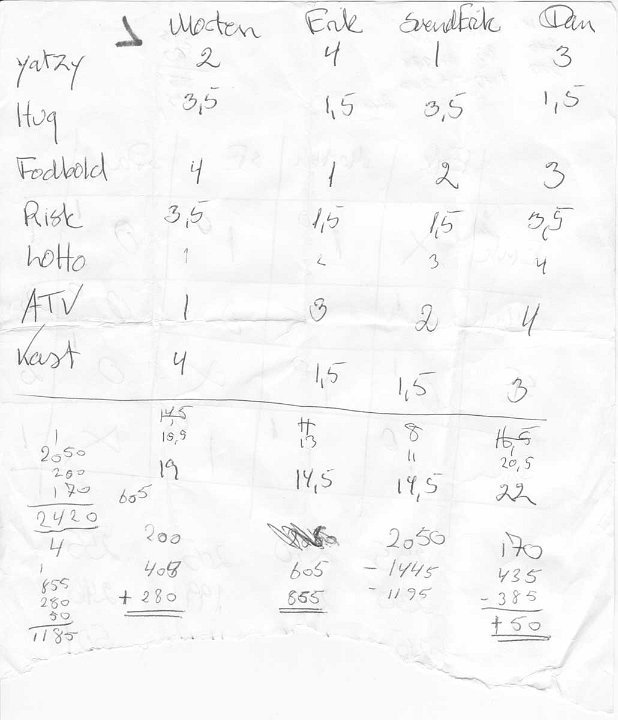 Morten Erik SvendErik Dan
yatzy 2 4 1 3
Hug 3,5 1,5 3,5 1,5
Fodbold 4 1 2 3
Risk 3,5 1,5 1,5 3,5
Lotto 1 2 3 4
ATV 1 3 2 4
Kast 4 1,5 1,5 3
14,5 11 8 16,5
1 13 11 20,5
2050 19 14,5 14,5 22
200
170 605
2420
200 2050 170
4 408 605 -1445 435
1 +280 855 -1195 -385
855 +50
280
50
1185